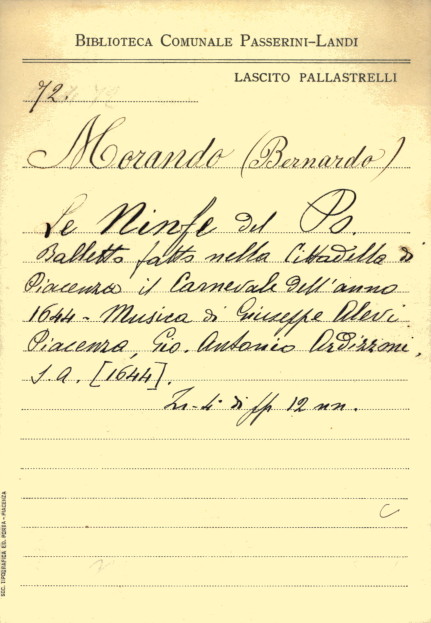 BIBLIOTECA COMUNALE PASSERINI-LANDI
LASCITO PALLASTRELLI
72.
Morando (Bernardo)
Le Ninfe del Po.
Balletto fatto nella Cittadella di
Piacenza il Carnevale dell'anno
1644 - Musica di Giuseppe Alevi.
Piacenza, Gio. Antonio Ardizzoni,
S.A. [1644].
In-4° di pp 12 nn.
SOC. TIPOGRAFICA ED. PORTA - PIACENZA